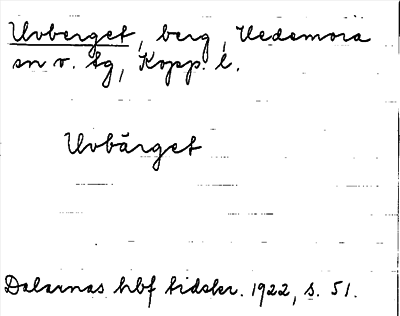 Uvberget, berg, Hedemora
sn v. tg, Kopp. l.
Uvbärget
Dalarnas hbf tidskr. 1922, s. 51.